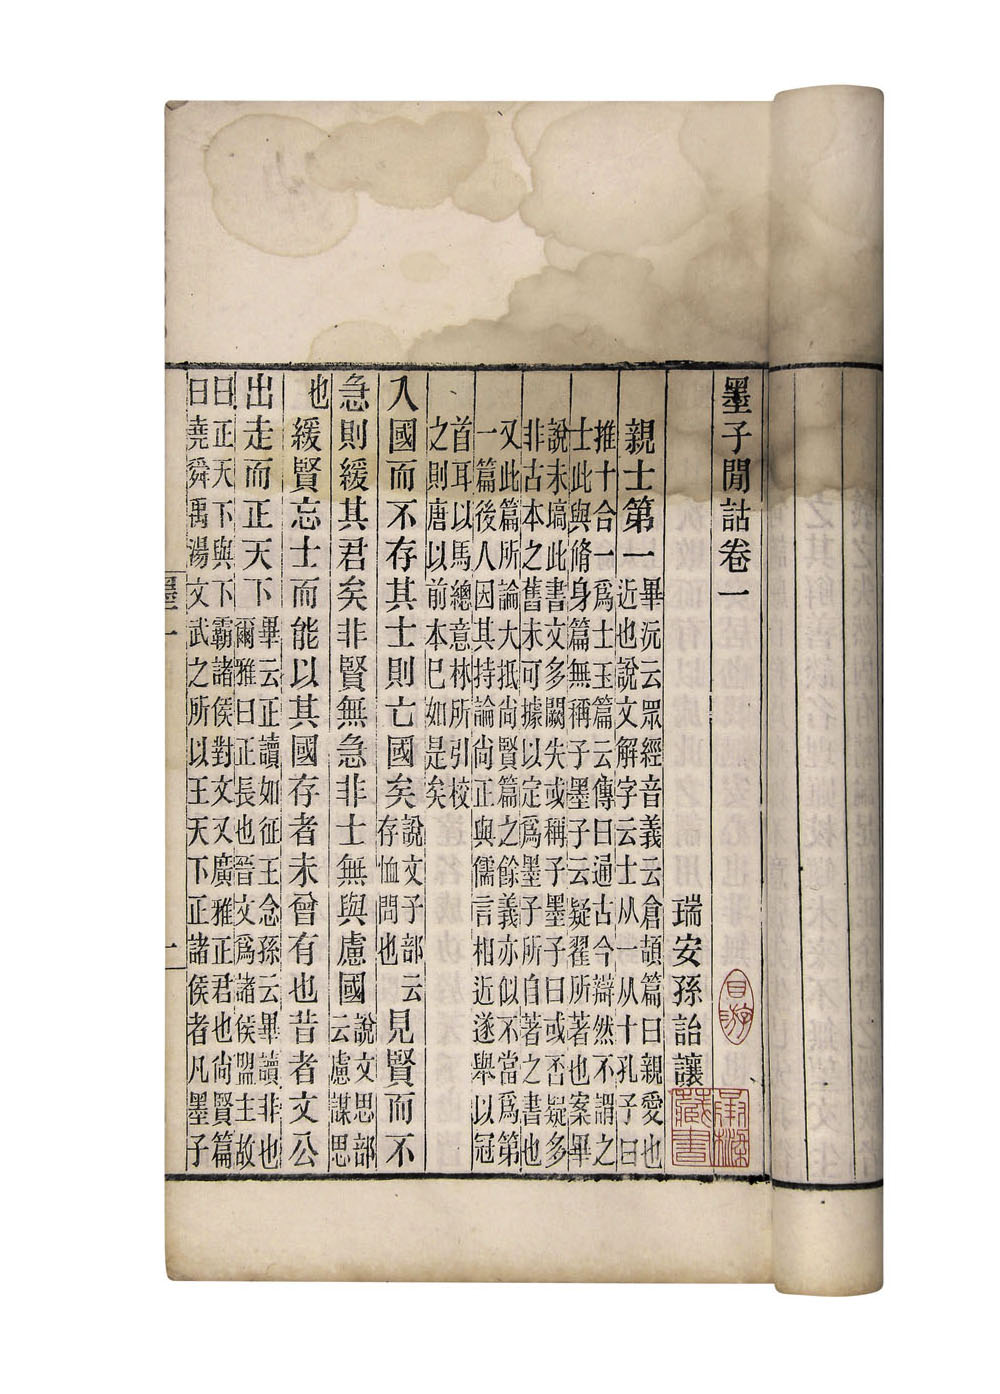 墨子閒詁卷一
瑞安孫詒讓
親士第一
畢沅云眾經音義云倉頡篇曰親愛也
近也說文解字云士从一从十孔子曰
推十合一爲士玉篇云傳曰通古今辯然不謂之
士此與脩身篇無稱子墨子云疑翟所著也案畢
說未塙此書文多闕失或稱子墨子曰或否疑多
非古本之舊未可據以定爲墨子所自著之書也
又此篇所論大抵尚賢篇之餘義亦似不當爲第
一篇後人因其持論尚正與儒言相近遂舉以冠
首耳以馬總意林所引校
之則唐以前本已如是矣
入國而不存其士則亡國矣
說文子部云
存恤問也
見賢而不
急則緩其君矣非賢無急非士無與慮國
說文思部
云慮謀思
也
緩賢忘士而能以其國存者未曾有也昔者文公
出走而正天下
畢云正讀如征王念孫云畢讀非也
爾雅曰正長也晉文爲諸侯盟主故
曰正天下與下霸諸侯對文又廣雅正君也尚賢篇
曰堯舜禹湯文武之所以王天下正諸侯者凡墨子
墨一
一
藏書